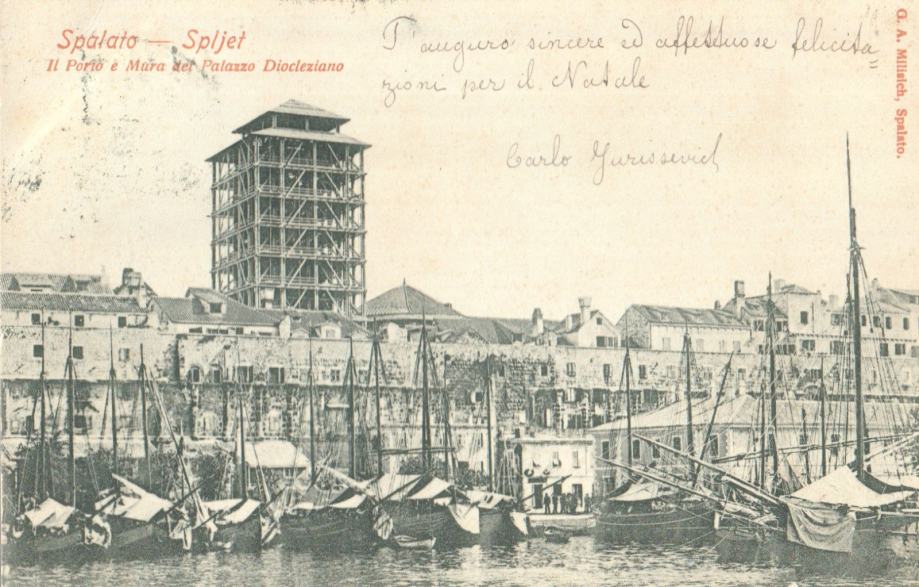 Spalato — Spljet
Il Porto e Mura del Palazzo Diocleziano
T'auguro sincere ed affettuose felicita
zioni per il Natale
Carlo Jurissevich
G. A. Milisich, Spalato.